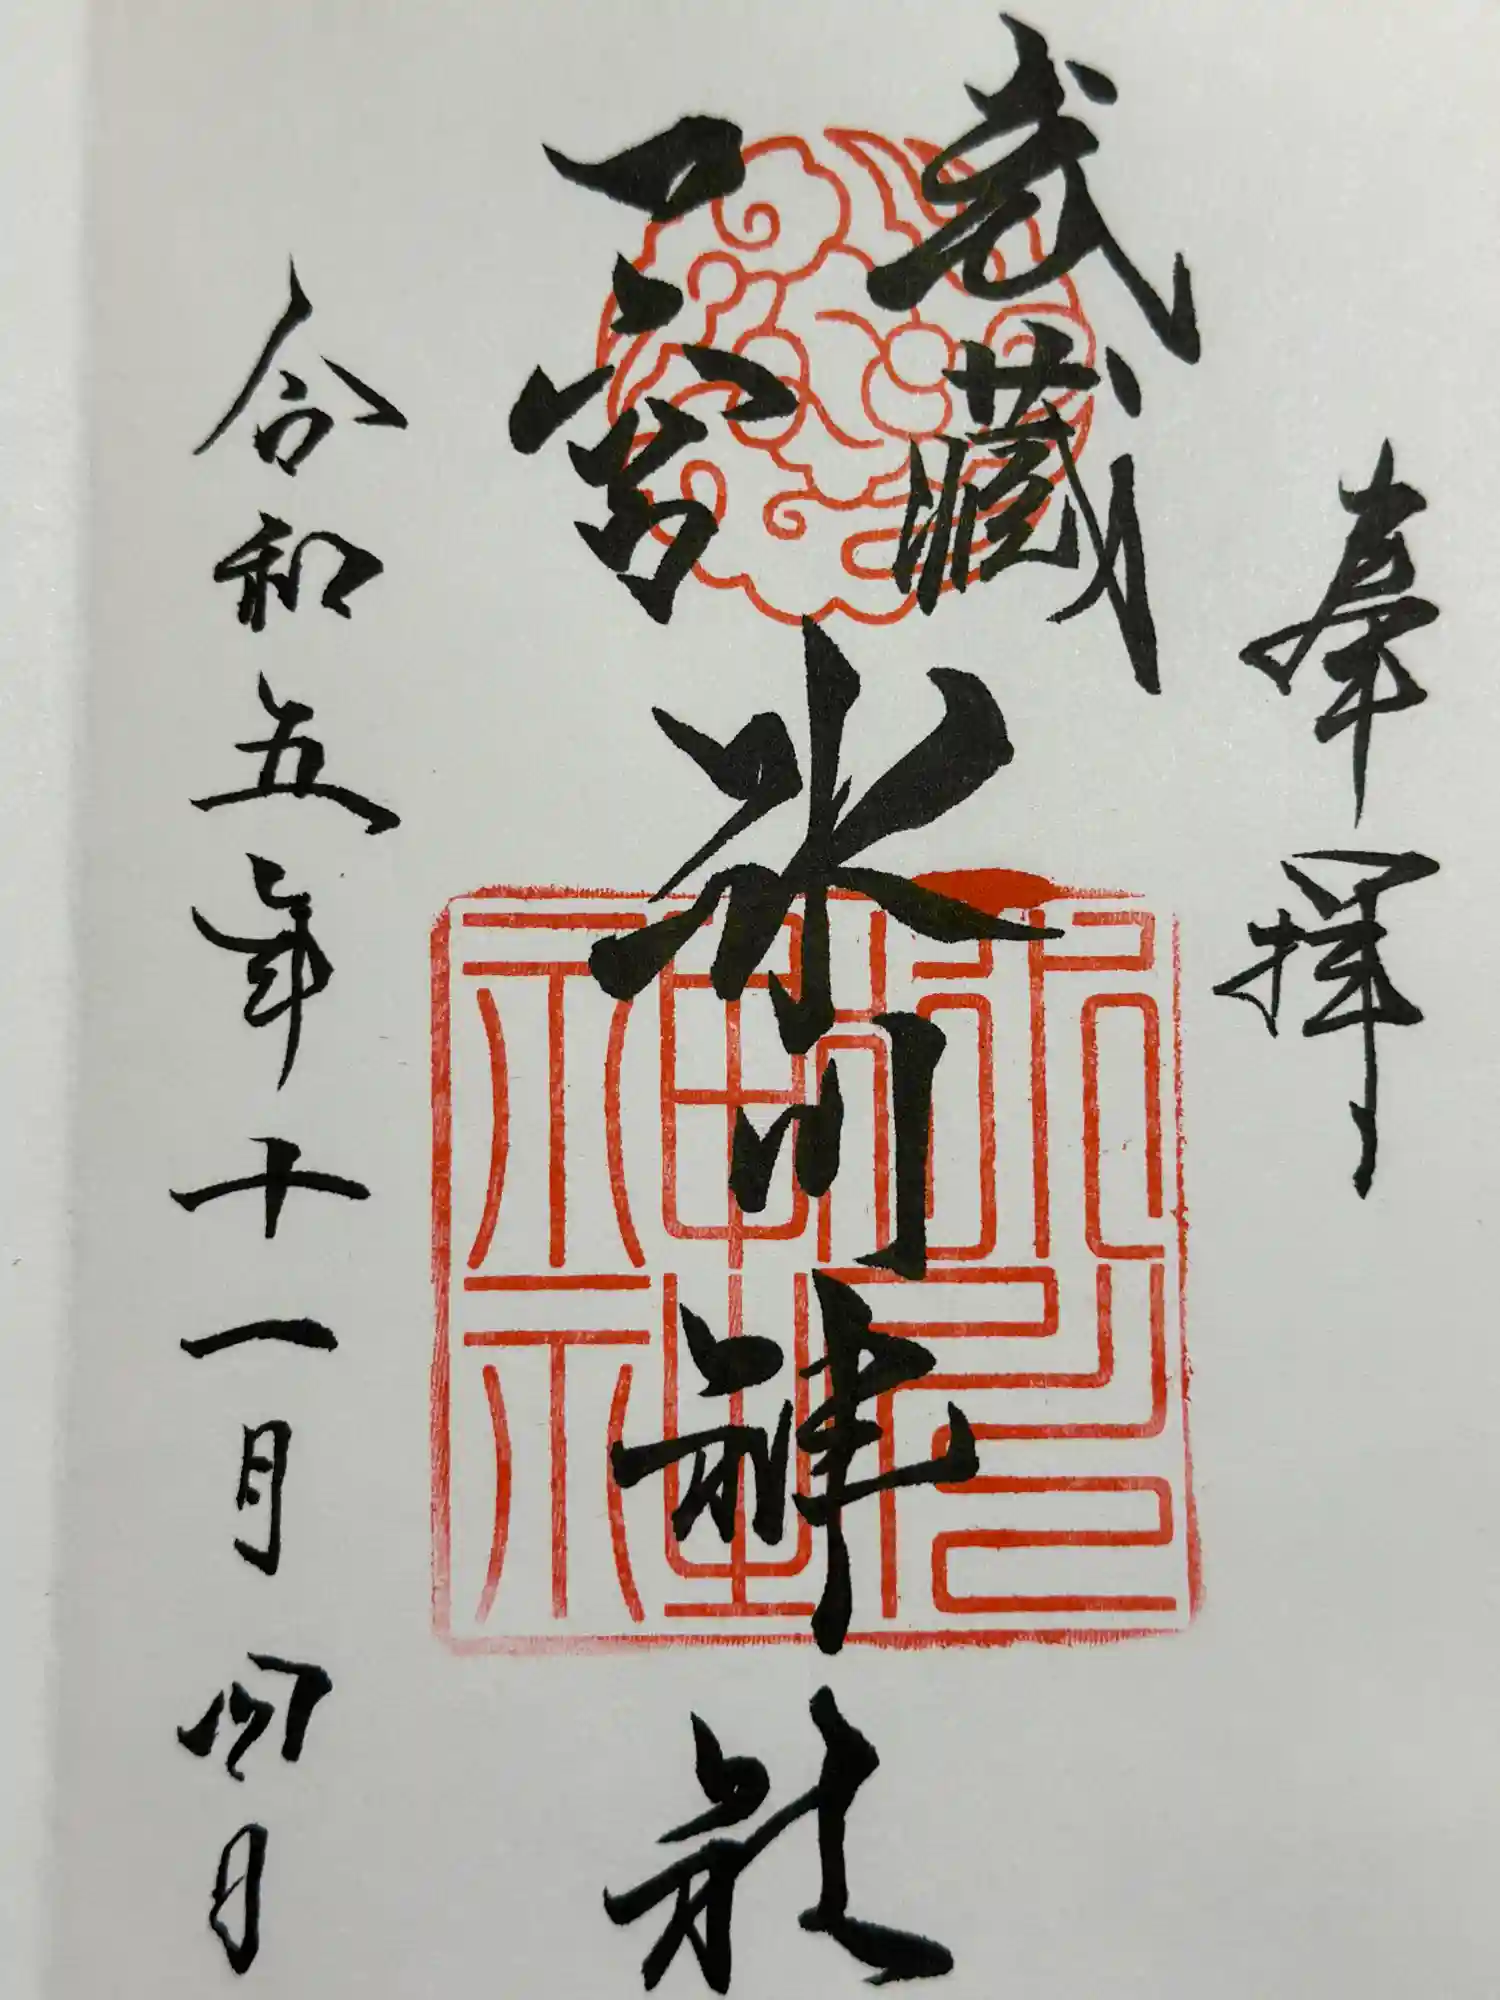 奉拝
武蔵
一宮
氷川神社
令和五年十一月四日
氷川神社